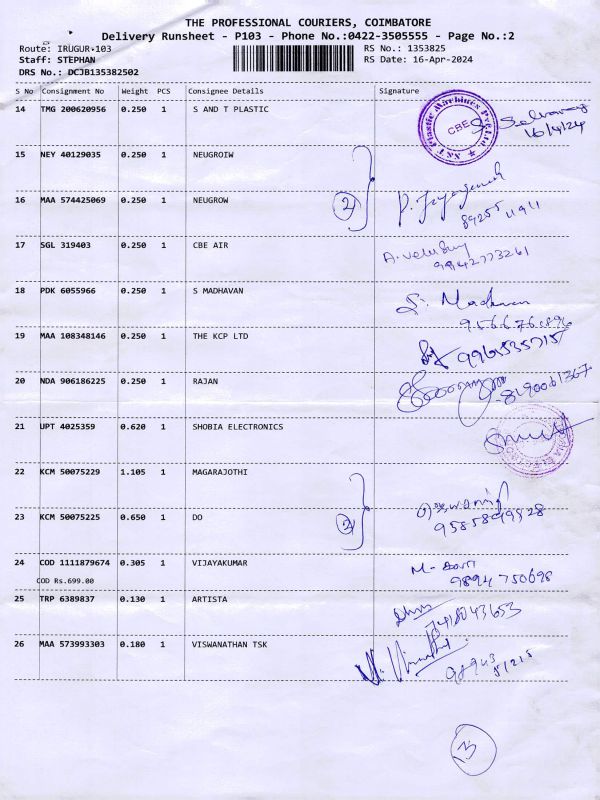 THE PROFESSIONAL COURIERS, COIMBATORE
Delivery Runsheet - P103 - Phone No.:0422-3505555 - Page No.:2
Route: IRUGUR-103
RS No.: 1353825
Staff: STEPHAN
RS Date: 16-Apr-2024
DRS No.: DCJB135382502
S No Consignment No Weight PCS Consignee Details Signature
14 TMG 200620956 0.250 1 S AND T PLASTIC
CBE
16/4/24
15 NEY 40129035 0.250 1 NEUGROIW
2
16 MAA 574425069 0.250 1 NEUGROW
89255 11911
17 SGL 319403 0.250 1 CBE AIR
9942773261
18 PDK 6055966 0.250 1 S MADHAVAN
S. Madhavan
19 MAA 108348146 0.250 1 THE KCP LTD
20 NDA 906186225 0.250 1 RAJAN
21 UPT 4025359 0.620 1 SHOBIA ELECTRONICS
22 KCM 50075229 1.105 1 MAGARAJOTHI
2
23 KCM 50075225 0.650 1 DO
24 COD 1111879674 0.305 1 VIJAYAKUMAR
COD Rs.699.00
9894 750698
25 TRP 6389837 0.130 1 ARTISTA
26 MAA 573993303 0.180 1 VISWANATHAN TSK
13